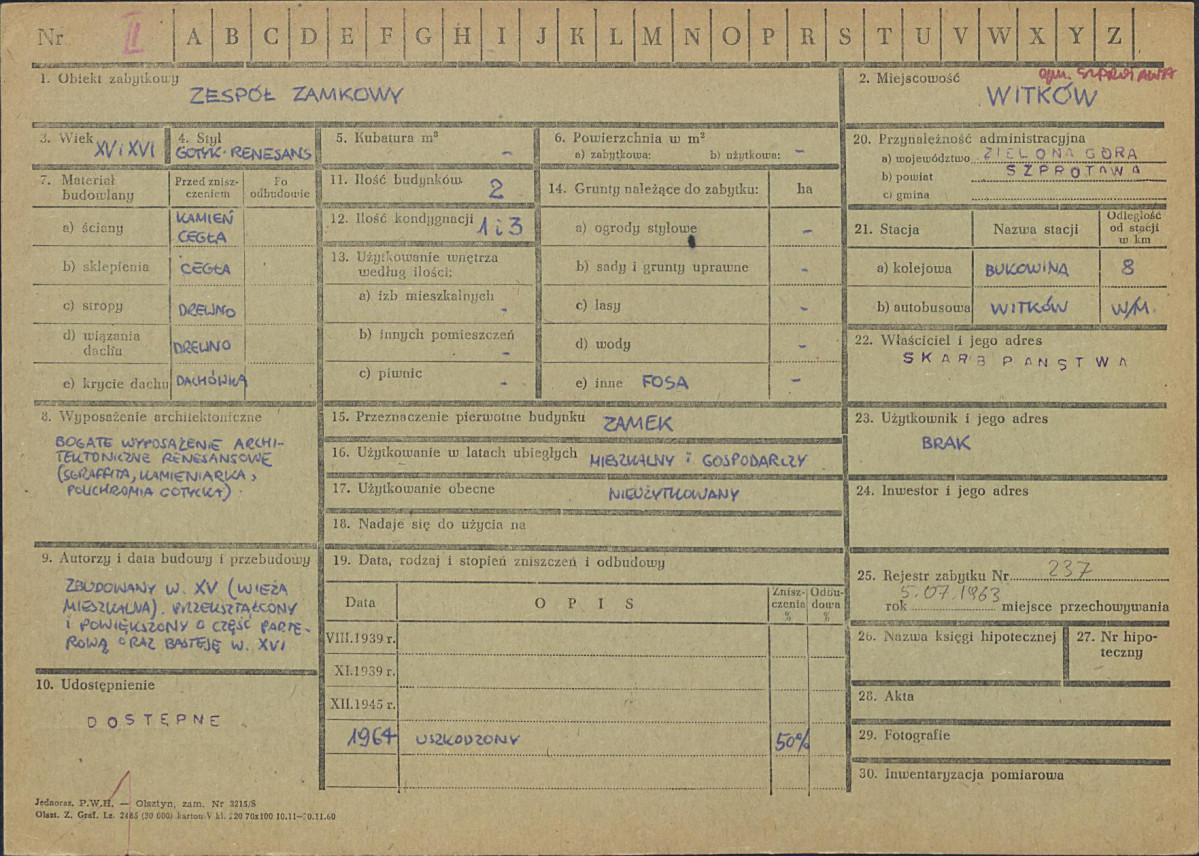 Nr II A B C D E F G H I J K L M N O P R S T U V W X Y Z
1. Obiekt zabytkowy
ZESPÓŁ ZAMKOWY
2. Miejscowość
gm. SZPROTAWA
WITKÓW
3. Wiek
XV i XVI
4. Styl
GOTYK-RENESANS
5. Kubatura m³
-
6. Powierzchnia w m²
a) zabytkowa: b) użytkowa: -
7. Materiał budowlany
Przed zniszczeniem
Po odbudowie
a) ściany KAMIEŃ
CEGŁA
b) sklepienia CEGŁA
c) stropy DREWNO
d) wiązania
dachu DREWNO
e) krycie dachu DACHÓWKA
8. Wyposażenie architektoniczne
BOGATE WYPOSAŻENIE ARCHI-
TEKTONICZNE RENESANSOWE
(SGRAFFITA, KAMIENIARKA,
POLICHROMIA GOTYCKA)
9. Autorzy i data budowy i przebudowy
ZBUDOWANY W. XV (WIEŻA
MIESZKALNA). PRZEKSZTAŁCONY
I POWIĘKSZONY O CZĘŚĆ PARTE-
ROWĄ ORAZ BASTEJĘ W. XVI
10. Udostępnienie
DOSTĘPNE
11. Ilość budynków 2
12. Ilość kondygnacji 1 i 3
13. Użytkowanie wnętrza
według ilości:
a) izb mieszkalnych
-
b) innych pomieszczeń
-
c) piwnic
-
14. Grunty należące do zabytku: ha
a) ogrody stylowe -
b) sady i grunty uprawne -
c) lasy -
d) wody -
e) inne FOSA -
15. Przeznaczenie pierwotne budynku ZAMEK
16. Użytkowanie w latach ubiegłych MIESZKALNY i GOSPODARCZY
17. Użytkowanie obecne NIEUŻYTKOWANY
18. Nadaje się do użycia na
19. Data, rodzaj i stopień zniszczeń i odbudowy
Data OPIS Znisz-
czenia
% Odbu-
dowa
%
VIII.1939 r.
XI.1939 r.
XII.1945 r.
1964 USZKODZONY 50%
20. Przynależność administracyjna
a) województwo ZIELONA GÓRA
b) powiat SZPROTAWA
c) gmina
21. Stacja Nazwa stacji Odległość
od stacji
w km
a) kolejowa BUKOWINA 8
b) autobusowa WITKÓW W/M.
22. Właściciel i jego adres
SKARB PAŃSTWA
23. Użytkownik i jego adres
BRAK
24. Inwestor i jego adres
25. Rejestr zabytku Nr 237
rok 5.07.1963 miejsce przechowywania
26. Nazwa księgi hipotecznej
27. Nr hipo-
teczny
28. Akta
29. Fotografie
30. Inwentaryzacja pomiarowa
Jednoraz. P.W.H. — Olsztyn, zam. Nr 3215/S
Olszt. Z. Graf. Lz. (30 000) karton V kl. 220 70x100